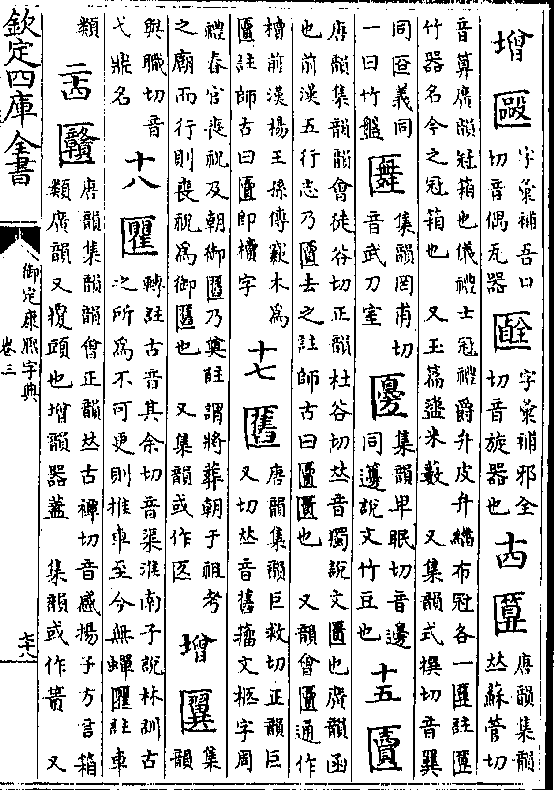 增 字彙補吾口切音偶瓦器 字彙補邪全切音旋器也 十四 匴 唐韻集韻𠀤蘇管切
音算廣韻冠箱也儀禮士冠禮爵弁皮弁緇布冠各一匴註匴
竹器名今之冠箱也 又玉篇盪米籔 又集韻式撰切音巽
同匜義同
一曰竹盤 集韻罔甫切
音武刀室 集韻卑眠切音邊
同籩說文竹豆也 十五 匵
唐韻集韻韻會徒谷切正韻杜谷切𠀤音獨說文匱也廣韻函
也前漢五行志乃匵去之註師古曰匵匱也 又韻會匵通作
櫝前漢楊王孫傳窾木為
匵註師古曰匵即櫝字 十七 匶 唐韻集韻巨救切正韻巨
又切𠀤音舊籀文柩字周
禮春官喪祝及朝御匶乃奠註謂將葬朝于祖考
之廟而行則喪祝為御匶也 又集韻或作匛 增 集韻
與職切音
弋鼎名 十八 匷 轉註古音其余切音渠淮南子說林訓古
之所為不可更則推車至今無蟬匷註車
類 二十四 唐韻集韻韻會正韻𠀤古禫切音感揚子方言箱
類廣韻又覆頭也增韻器蓋 集韻或作 又
欽定四庫全書
御定康熙字典
卷三
七十八